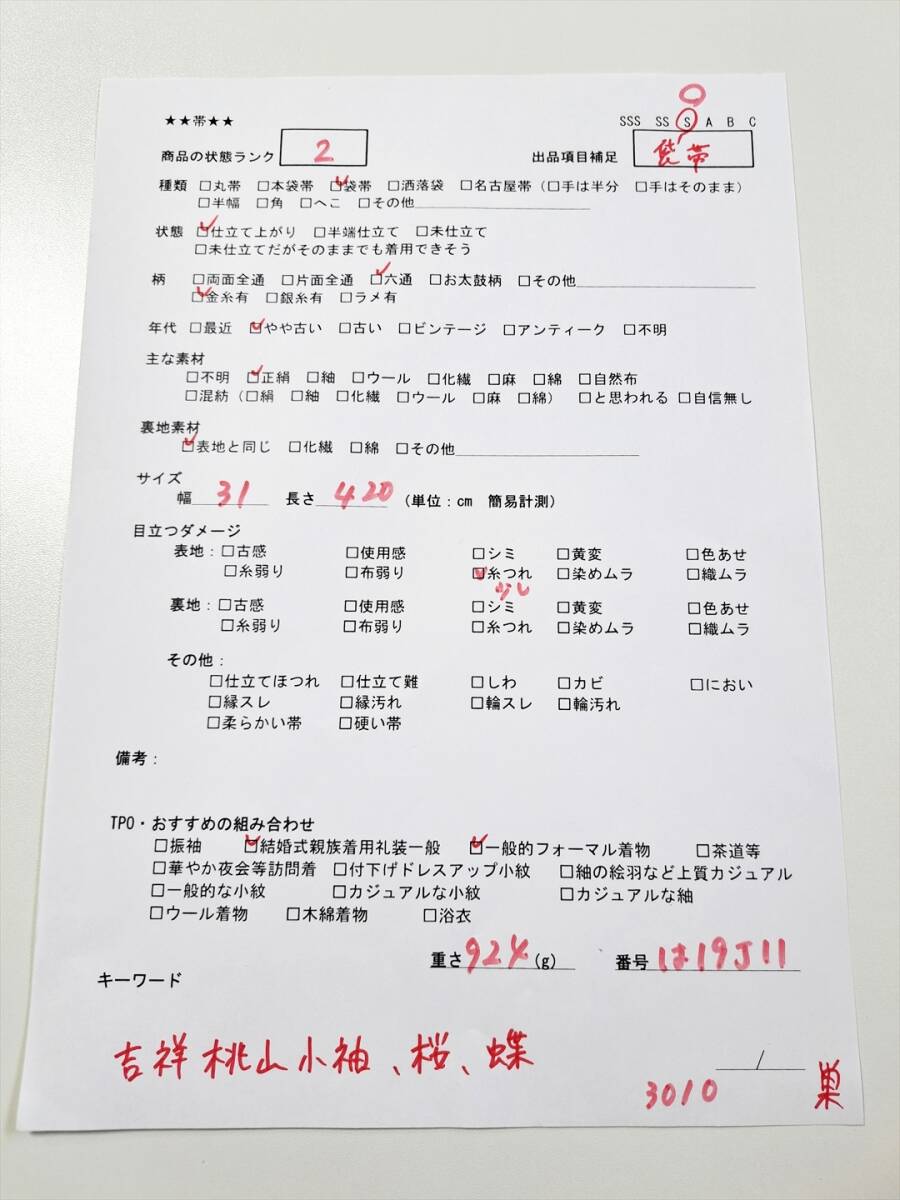 ★★帯★★ SSS SS S A B C
商品の状態ランク 2 出品項目補足 袋帯
種類 □丸帯 □本袋帯 ☑袋帯 □洒落袋 □名古屋帯(□手は半分 □手はそのまま)
□半幅 □角 □へこ □その他
状態 ☑仕立て上がり □半端仕立て □未仕立て
□未仕立てだがそのままでも着用できそう
柄 □両面全通 □片面全通 ☑六通 □お太鼓柄 □その他
☑金糸有 □銀糸有 □ラメ有
年代 □最近 ☑やや古い □古い □ビンテージ □アンティーク □不明
主な素材
□不明 ☑正絹 □紬 □ウール □化繊 □麻 □綿 □自然布
□混紡(□絹 □紬 □化繊 □ウール □麻 □綿) □と思われる □自信無し
裏地素材
☑表地と同じ □化繊 □綿 □その他
サイズ
幅 31 長さ 420 (単位:cm 簡易計測)
目立つダメージ
表地:□古感 □使用感 □シミ □黄変 □色あせ
□糸弱り □布弱り ☑糸つれ □染めムラ □織ムラ
少し
裏地:□古感 □使用感 □シミ □黄変 □色あせ
□糸弱り □布弱り □糸つれ □染めムラ □織ムラ
その他:
□仕立てほつれ □仕立て難 □しわ □カビ □におい
□縁スレ □縁汚れ □輪スレ □輪汚れ
□柔らかい帯 □硬い帯
備考:
TPO・おすすめの組み合わせ
□振袖 ☑結婚式親族着用礼装一般 ☑一般的フォーマル着物 □茶道等
□華やか夜会等訪問着 □付下げドレスアップ小紋 □紬の絵羽など上質カジュアル
□一般的な小紋 □カジュアルな小紋 □カジュアルな紬
□ウール着物 □木綿着物 □浴衣
重さ 924 (g) 番号 は19J11
キーワード
吉祥桃山小袖、桜、蝶
/
3010 巣